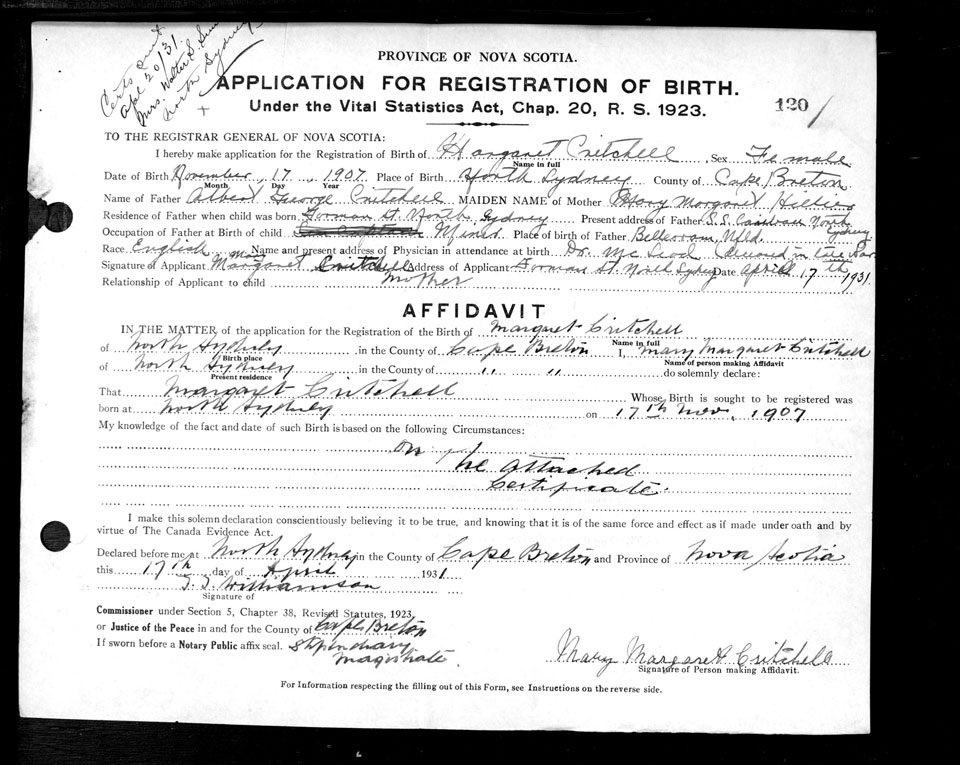 Certs sent
Apl 20/31.
Mrs. Walter S.
North Sydney
PROVINCE OF NOVA SCOTIA.
APPLICATION FOR REGISTRATION OF BIRTH.
Under the Vital Statistics Act, Chap. 20, R. S. 1923.
120
TO THE REGISTRAR GENERAL OF NOVA SCOTIA:
I hereby make application for the Registration of Birth of Margaret Critchell Sex Female
Name in full
Date of Birth November 17 1907 Place of Birth North Sydney County of Cape Breton
Month Day Year
Name of Father Albert George Critchell MAIDEN NAME of Mother Mary Margaret
Residence of Father when child was born Forman St. North Sydney Present address of Father S.S. North Sydney
Occupation of Father at Birth of child Miner Place of birth of Father Nfld.
Race English Name and present address of Physician in attendance at birth Dr. McLeod Deceased in late War
Signature of Applicant Mary Margaret Critchell Address of Applicant Forman St. North Sydney Date April 17th 1931.
Relationship of Applicant to child mother
AFFIDAVIT
IN THE MATTER of the application for the Registration of the Birth of Margaret Critchell
Name in full
of North Sydney in the County of Cape Breton I, Mary Margaret Critchell
Birth place Name of person making Affidavit
of North Sydney in the County of " " do solemnly declare:
Present residence
That Margaret Critchell Whose Birth is sought to be registered was
born at North Sydney on 17th Nov. 1907
My knowledge of the fact and date of such Birth is based on the following Circumstances:
on
the attached
Certificate.
I make this solemn declaration conscientiously believing it to be true, and knowing that it is of the same force and effect as if made under oath and by
virtue of The Canada Evidence Act.
Declared before me at North Sydney in the County of Cape Breton and Province of Nova Scotia
this 17th day of April 1931
Williamson
Signature of
Commissioner under Section 5, Chapter 38, Revised Statutes, 1923,
or Justice of the Peace in and for the County of Cape Breton
If sworn before a Notary Public affix seal. Stipendiary
Magistrate.
Mary Margaret Critchell
Signature of Person making Affidavit.
For Information respecting the filling out of this Form, see Instructions on the reverse side.